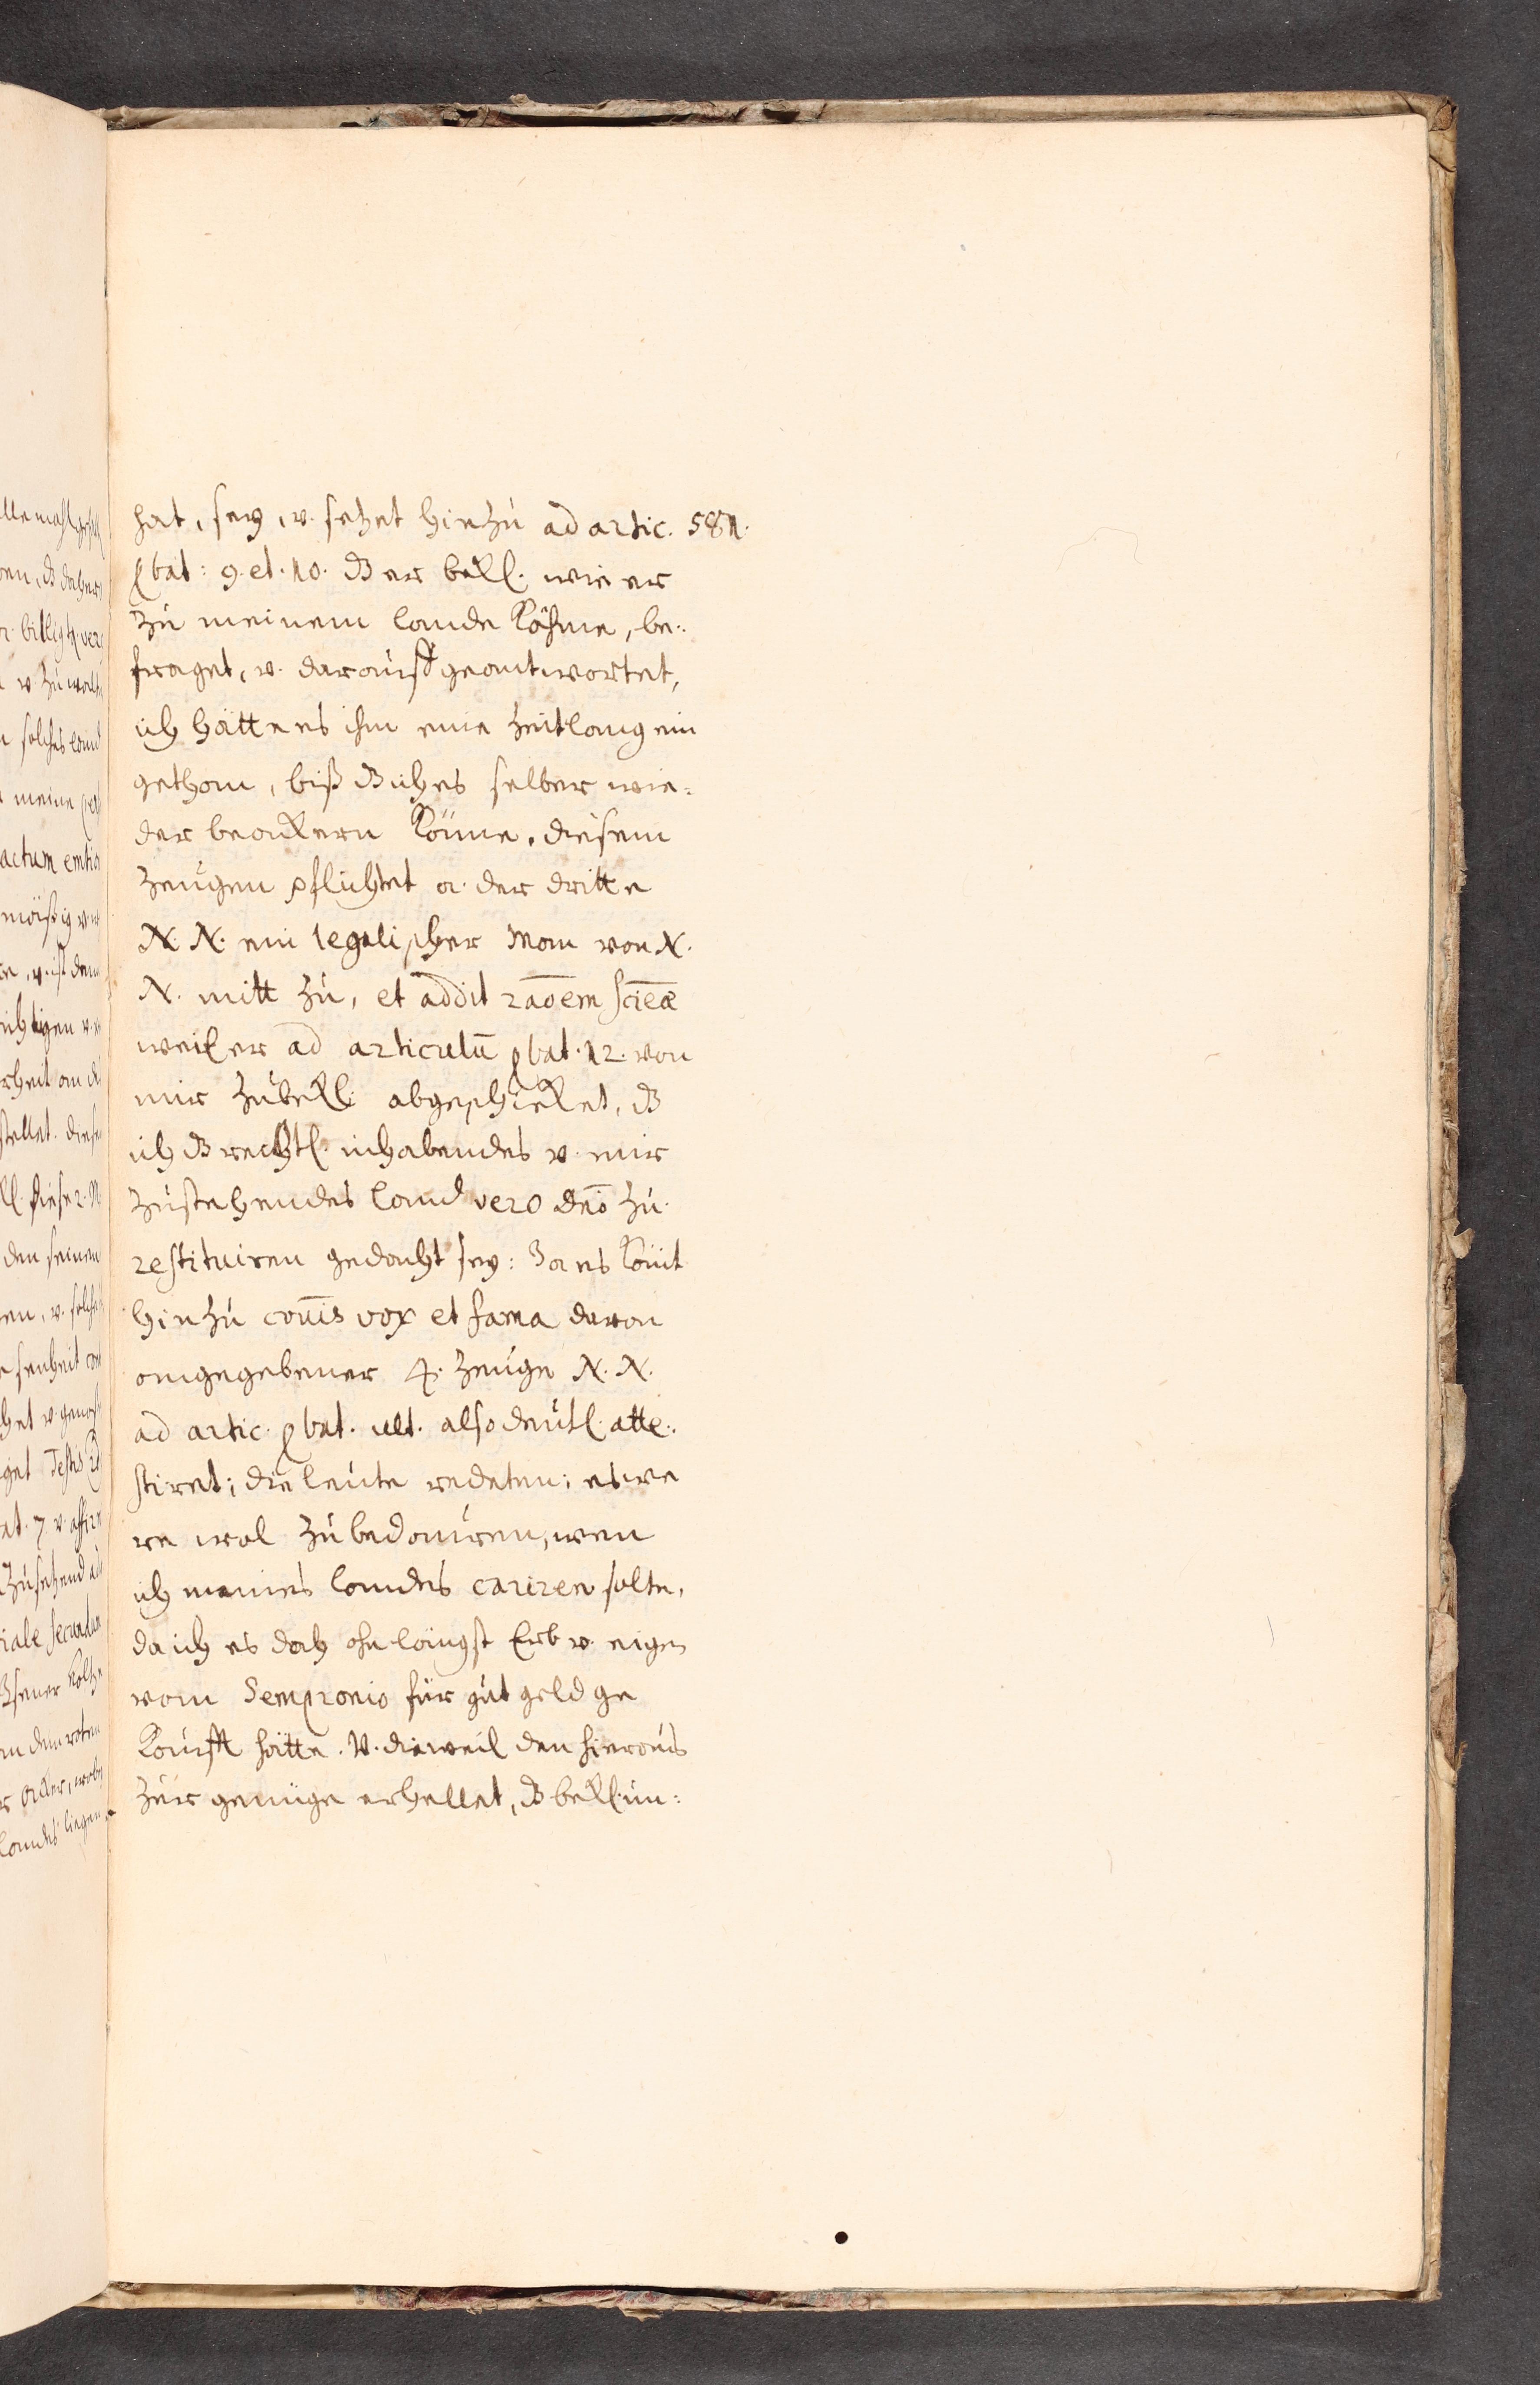 hat, sey, v. setzet hinzu ad artic. 581.
pbat: 9. et. 10. dß er bekl. wie er
zu meinem lande kähme, be:
fraget, v. darauff geantwortet,
ich hätte es ihm eine zeitlang ein
gethan, biß dß ich es selber wie:
der beackern könne. diesem
zeugen pflichtet a. der dritte
N. N. ein legalischer Man von N.
N. mitt zu, et addit raōem sciēae
weil er ad articulū pbat. 12. von
mir zu bekl. abgeschicket, dß
ich dß rechtl. inhabendes v. mir
zustehendes land vero dnō zu
restituiren gedacht sey: Ja es kōmt
hinzu cōuīs vox et fama davon
angegebener 4. zeuge N. N.
ad artic. pbat. ult. also deutl. atte:
stiret; die leute redeten; es we
re wol zu bedauren, wen
ich meines landes cariren solte,
da ich es doch ohnlängst Erb v. eigen
vom Sempronio für gut geld ge
kaufft hätte. V. dieweil den hieraus
zur genüge erhellet, dß bekl. un: